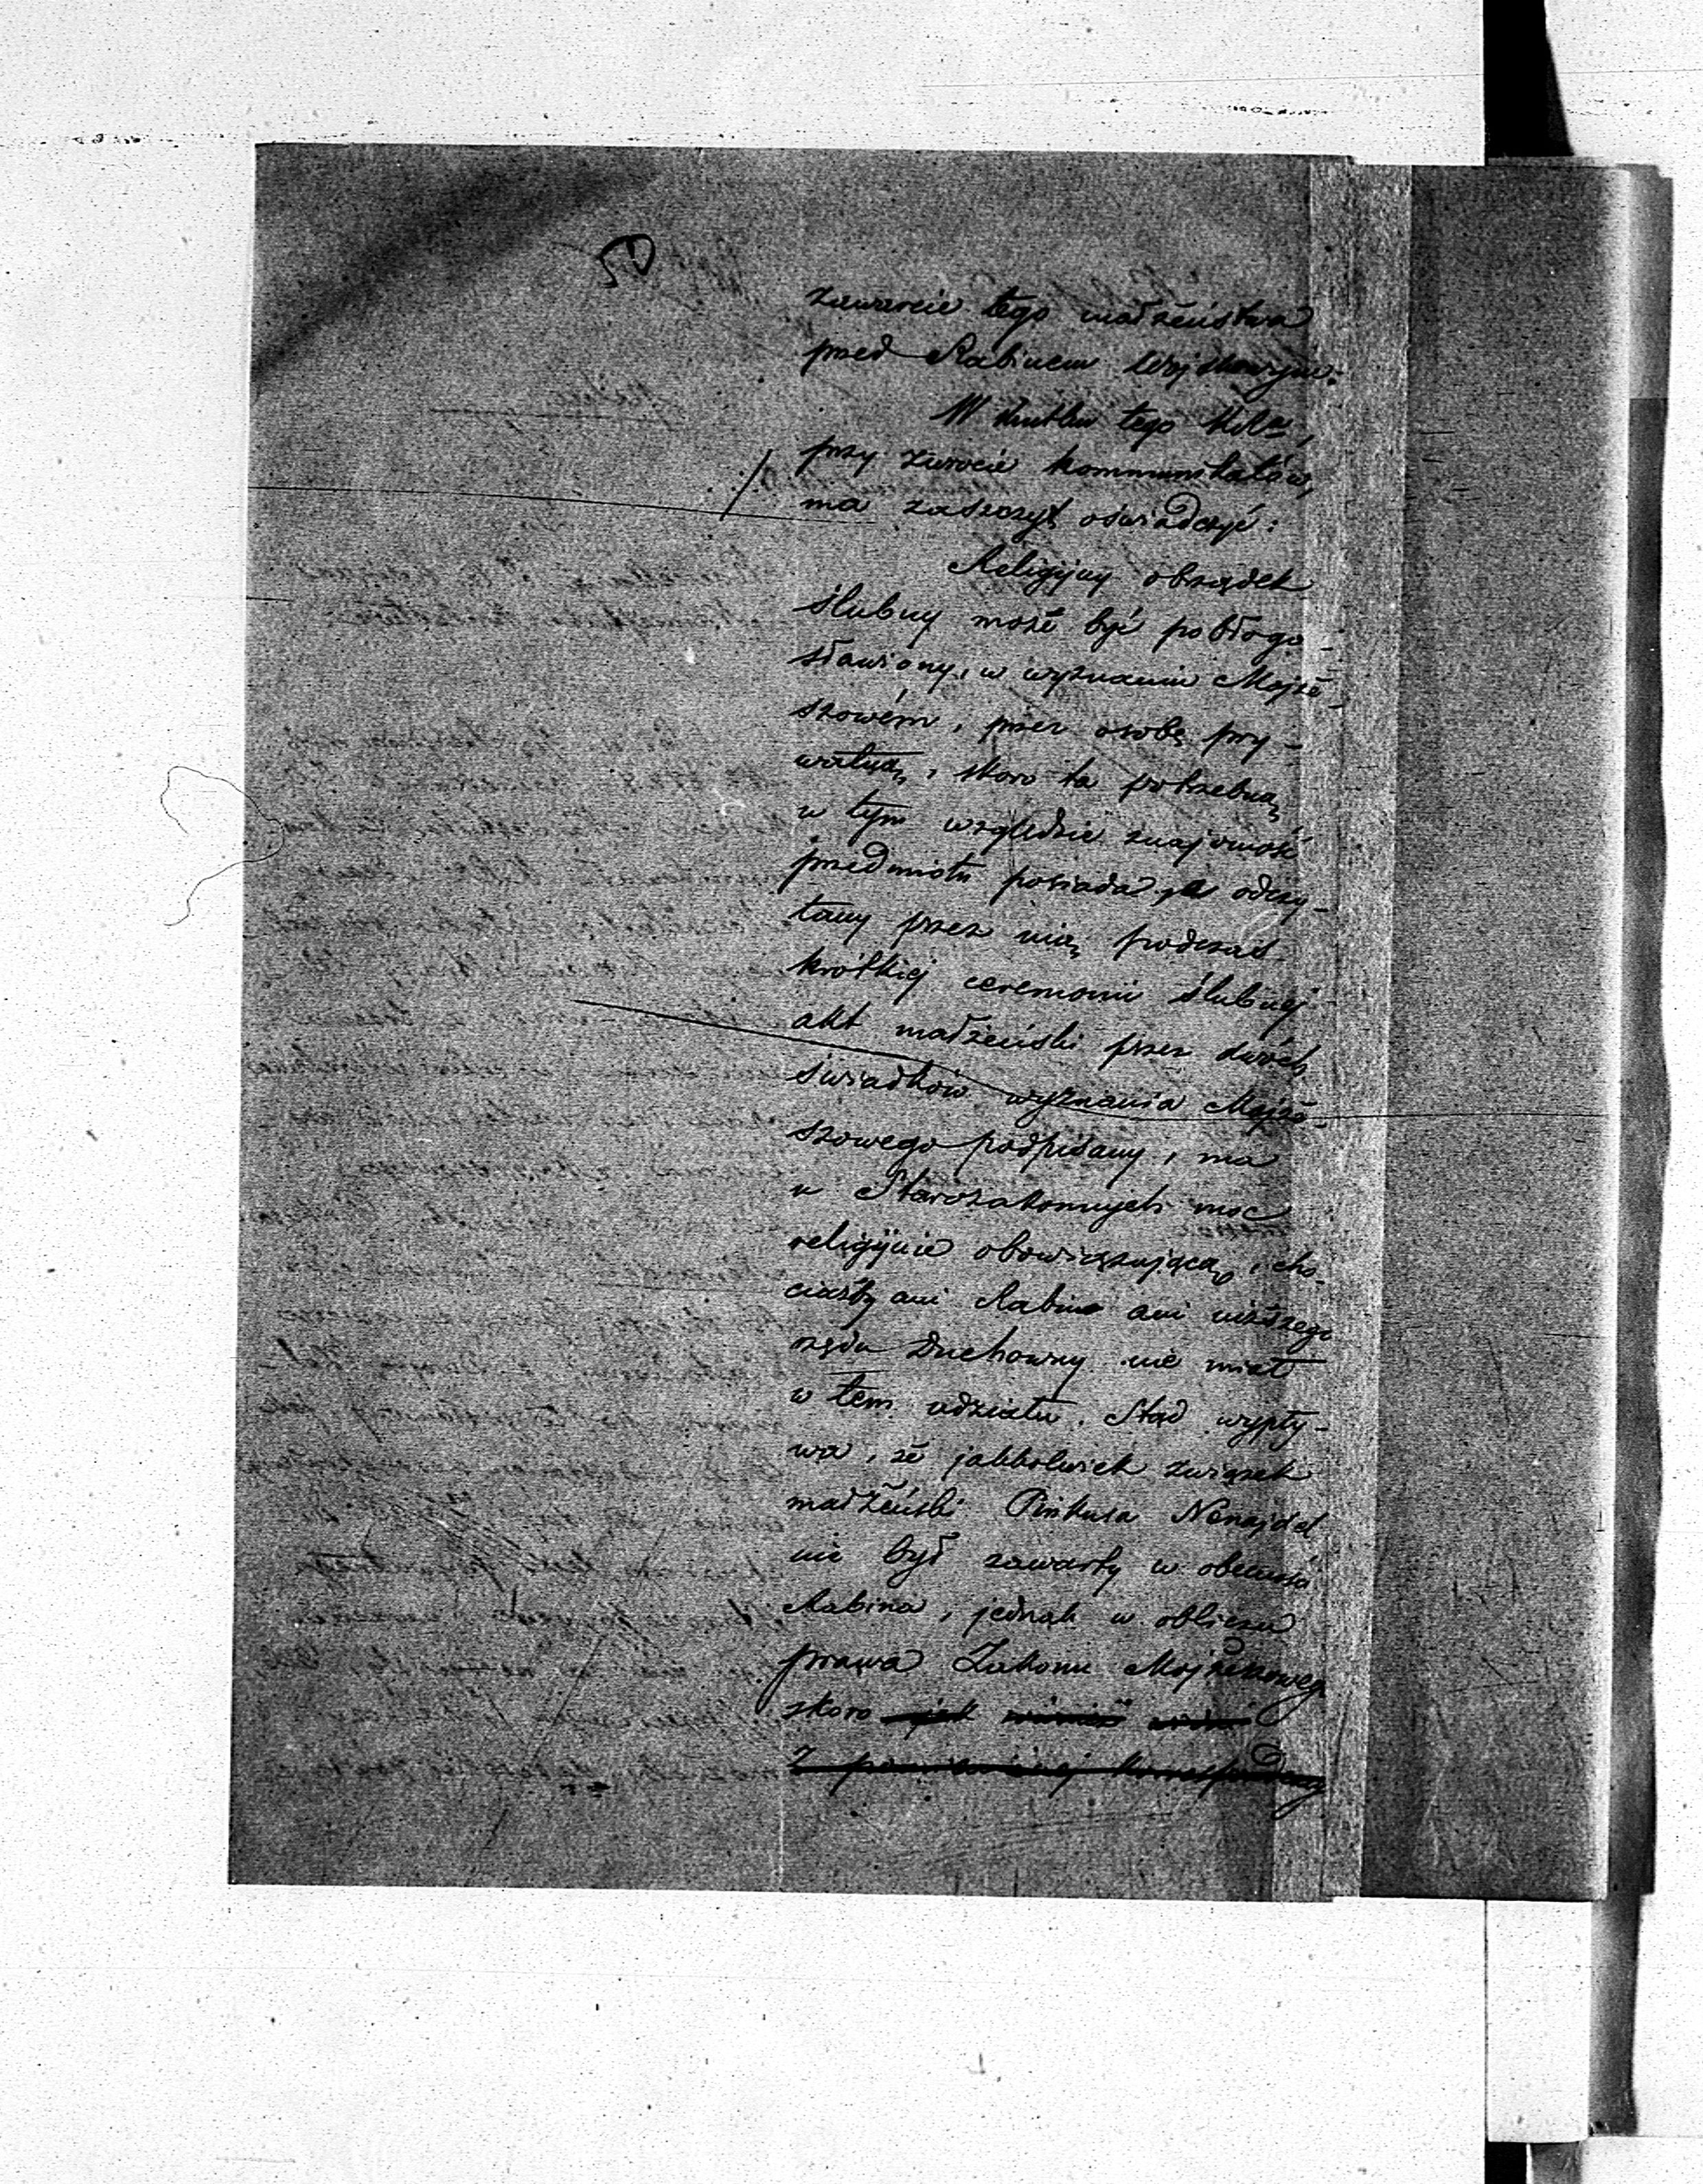 50
zawarcie tego małżeństwa
przed Rabinem wojskowym.
W skutku tego
przy zwrocie kommunikatów,
ma zaszczyt oświadczyć:
Religijny obrządek
ślubny może być pobłogo-
sławiony, w wyznaniu Mojże-
szowém, przez osobę pry-
watną, skoro ta potrzebną
w tym względzie znajomość
przedmiotu posiada, a odczy-
tany przez nią podczas
krótkiej ceremonii ślubnej
akt małżeński przez dwóch
świadków wyznania Mojże-
szowego podpisany, ma
u Starozakonnych moc
religijnie obowiązującą, cho-
ciażby ani Rabin ani niższego
rzędu Duchowny nie miał
w tem udziału. Stąd wypły-
wa, że jakkolwiek związek
małżeński Pinkusa Nenajdel
nie był zawarty w obecności
Rabina, jednak w obliczu
prawa Zakonu Mojżeszowego
skoro
z korrespondencyi